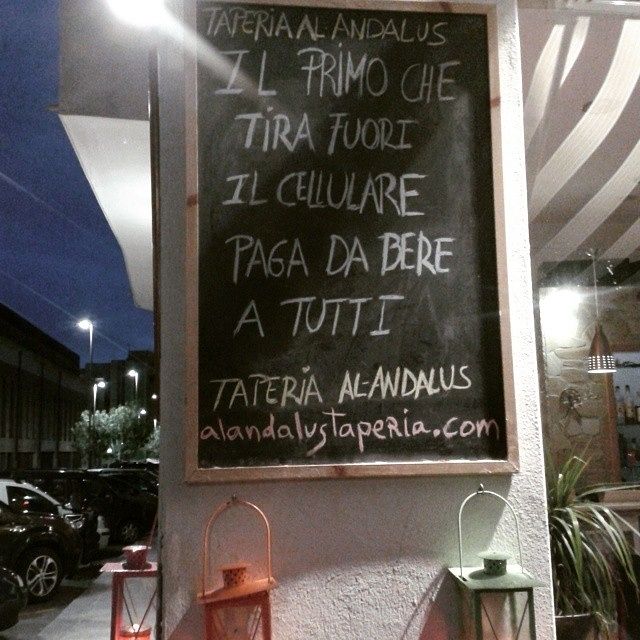 TAPERIA AL ANDALUS
IL PRIMO CHE
TIRA FUORI
IL CELLULARE
PAGA DA BERE
A TUTTI
TAPERIA AL-ANDALUS
alandalustaperia.com